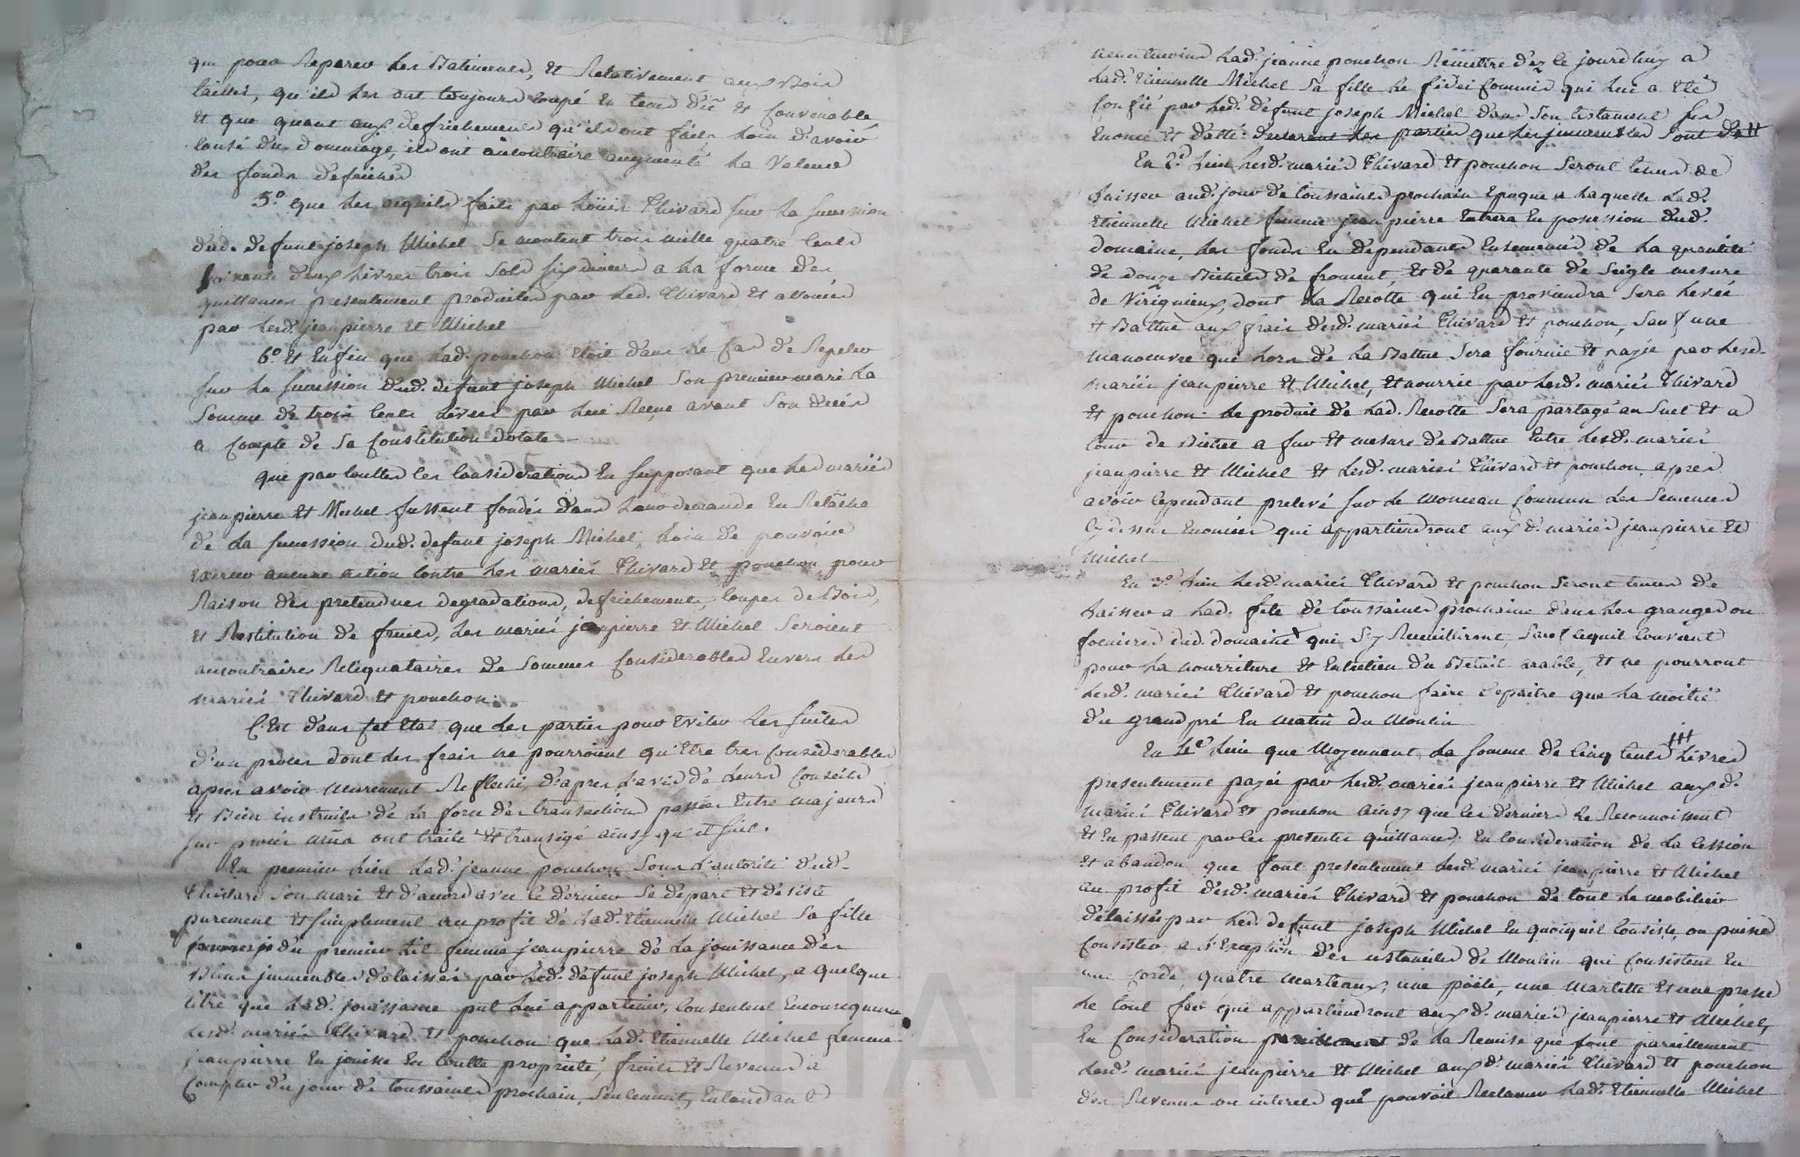 que pour Reparer les Batiments, et Relativement aux Bois
taillis, qu'ils les ont toujours coupé en tems dû et convenable
et que quant aux defrichements qu'ils ont faits loin d'avoir
causé du dommage, ils ont aucontraire augmenté la Valeur
des fonds defrichés
5.° que les acquits faits par Loüis Thivard sur la succession
dud. defunt joseph Michel se montent trois mille quatre cents
soixante deux livres trois sols six deniers a la forme des
quittances presentement produites par led. Thivard et avoüées
par lesd. jeanpierre et Michel
6.° Et Enfin que lad. ponchon etoit dans le cas de Repeter
sur la succession dud. defunt joseph Michel son premier mari la
somme de trois cents livres par lui Reçue avant son decès
a compte de sa Constitution dotale
que par touttes ces Considerations En supposant que les mariés
jeanpierre et Michel fussent fondés dans leur demande En Relache
de la succession dud. defunt joseph Michel, loin de pouvoir
Exercer aucune action contre les mariés Thivard et ponchon pour
Raison des pretendues degradations, defrichements, coupes de Bois,
et Restitution de fruits, les mariés jeanpierre et Michel seroient
aucontraires Reliquataires de sommes Considerables Envers les
mariés Thivard et ponchon.
C'Est dans cet Etat que les parties pour Eviter les suites
d'un procès dont les frais ne pourroient qu'Etre tres Considerables
apres avoir meurement Reflechi, d'apres l'avis de leurs Conseils
et Bien instruits de la force des transactions passées Entre majeurs
sur procès mûs ont traité et transigé ainsy qu'il suit.
En premier lieu lad. jeanne ponchon sous l'autorité dud.
Thivard son mari et d'accord avec ce dernier se depart et desiste
purement et simplement au profit de lad. Etiennette Michel sa fille
du premier lit femme jeanpierre de la jouissance des
Biens immeubles delaissés par led. defunt joseph Michel, a quelque
titre que lad. jouissance put lui appartenir, Consentent Enconsequence
lesd. mariés Thivard et ponchon que lad. Etiennette Michel femme
jeanpierre En jouisse En toutte proprieté, fruits et Revenus a
Compter du jour de toussaints prochain, seulement, Entendant
lad. jeanne ponchon Remettre dez le jourd'huy a
lad. Etiennette Michel sa fille le fideicommis qui lui a Eté
confié par led. defunt joseph Michel dans son testament ici
Enoncé et datté declarent les parties que les immeubles sont de #
En 2.e lieu lesd. mariés Thivard et ponchon seront tenus de
laisser aud. jour de toussaints prochain Epoque a laquelle lad.
Etiennette Michel femme jeanpierre Entrera En possession dud.
domaine, les fonds En dependants Ensemencés de la quantité
de douze Bichets de froment et de quarante de seigle mesure
de Virignieux, dont la Recotte qui En proviendra sera levée
et Battue aux frais desd. mariés Thivard et ponchon, sauf une
manoeuvre qui lors de la Battue sera fournie et payée par lesd.
mariés jeanpierre et Michel, et nourrie par lesd. mariés Thivard
et ponchon. Le produit de lad. Recotte sera partagé au suel et a
tour de Bichet a fur et mesure de Battue Entre lesd. mariés
jeanpierre et Michel et lesd. mariés Thivard et ponchon apres
avoir cependant prelevé sur le Monceau commun les semences
Cydessus Enoncées qui appartiendront aux d. mariés jeanpierre et
Michel
En 3.e lieu lesd. mariés Thivard et ponchon seront tenus de
laisser a lad. fete de toussaints prochaine dans les granges ou
feniers dud. domaine qui s'y Receuilliront, sauf cequil Convient
pour la nourriture et Entretien du Betail arable, et ne pourront
lesd. mariés Thivard et ponchon faire depaitre que la moitié
du grand pré En matin du Moulin
En 4.e lieu que Moyennant la somme de Cinq Cents ### livres
presentement payée par lesd. mariés jeanpierre et Michel aux d.
mariés Thivard et ponchon ainsy que ces derniers le Reconnoissent
et En passent par les presentes quittance, En consideration de la cession
et abandon que font presentement lesd. mariés jeanpierre et Michel
au profit desd. mariés Thivard et ponchon de tout le mobilier
delaissé par led. defunt joseph Michel En quoiquil consiste ou puisse
consister a l'Exception des ustanciles de Moulin qui consistent En
une corde, quatre marteaux, une poële, une martelle et une presse
le tout fer qui appartiendront aux d. mariés jeanpierre et Michel,
En consideration de la Remise que font pareillement
lesd. mariés jeanpierre et Michel aux d. mariés Thivard et ponchon
des Revenus ou interets que pouvoit Reclamer lad. Etiennette Michel